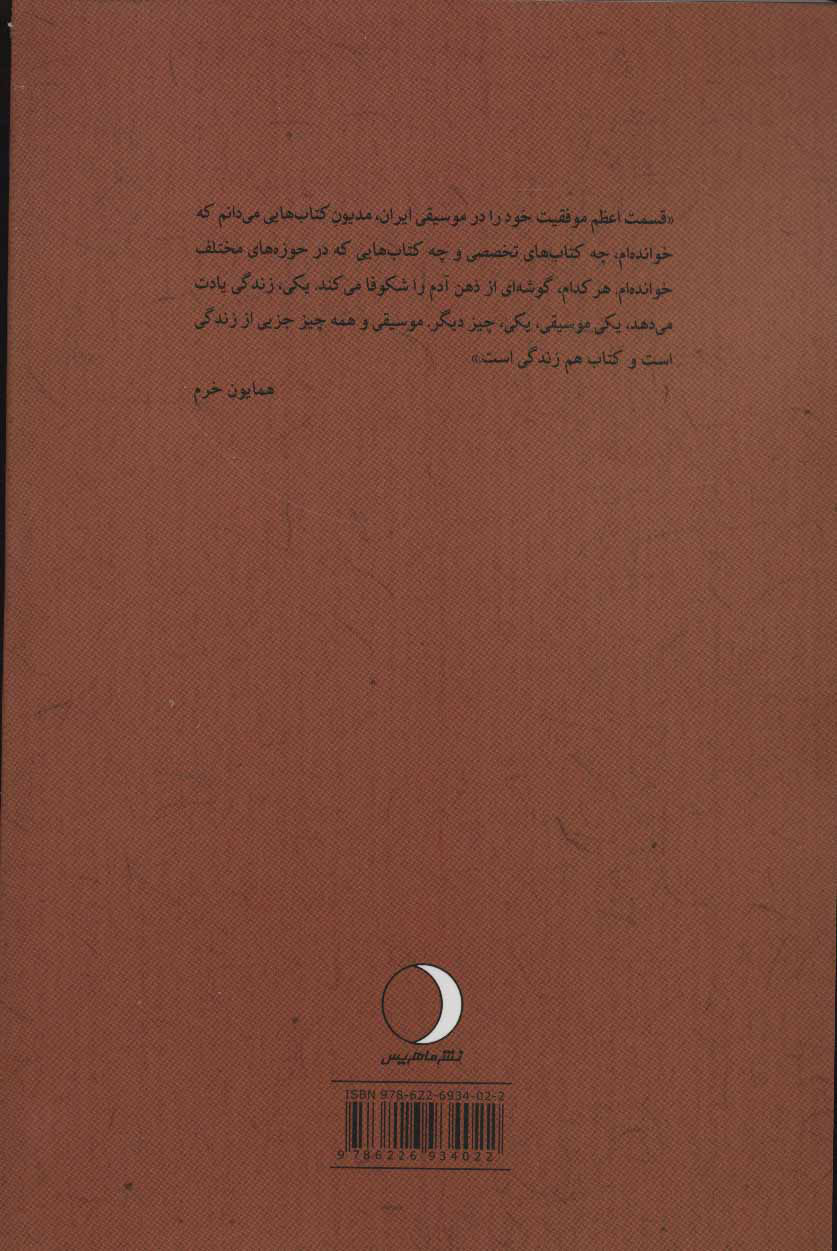 «قسمت اعظم موفقیت خود را در موسیقی ایران، مدیون کتاب‌هایی می‌دانم که
خوانده‌ام، چه کتاب‌های تخصصی و چه کتاب‌هایی که در حوزه‌های مختلف
خوانده‌ام. هر کدام، گوشه‌ای از ذهن آدم را شکوفا می‌کند. یکی، زندگی یادت
می‌دهد، یکی موسیقی، یکی، چیز دیگر. موسیقی و همه چیز جزیی از زندگی
است و کتاب هم زندگی است.»
همایون خرم
نشر ماهریس
ISBN 978-622-6934-02-2
9 786226 934022